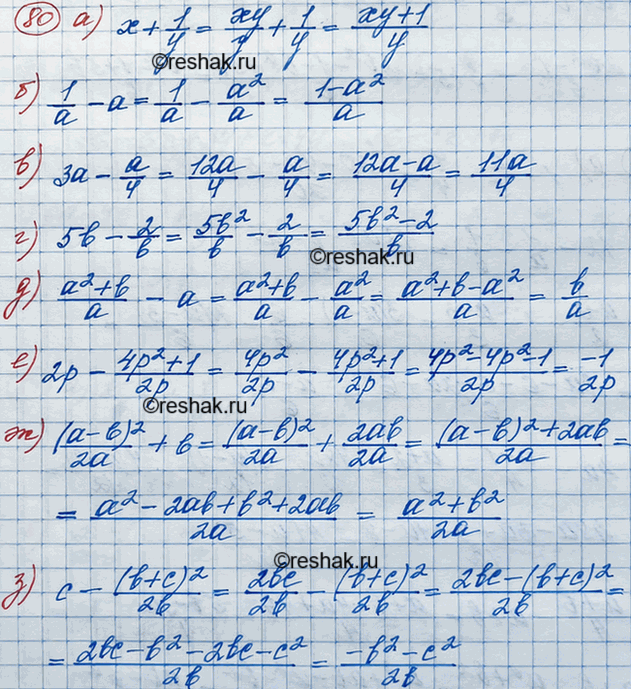 80 а) x + 1/y = xy/y + 1/y = xy+1/y
©reshak.ru
б) 1/a - a = 1/a - a²/a = 1-a²/a
в) 3a - a/4 = 12a/4 - a/4 = 12a-a/4 = 11a/4
г) 5b - 2/b = 5b²/b - 2/b = 5b²-2/b
©reshak.ru
д) a²+b/a - a = a²+b/a - a²/a = a²+b-a²/a = b/a
е) 2p - 4p²+1/2p = 4p²/2p - 4p²+1/2p = 4p²-4p²-1/2p = -1/2p
©reshak.ru
ж) (a-b)²/2a + b = (a-b)²/2a + 2ab/2a = (a-b)²+2ab/2a =
= a²-2ab+b²+2ab/2a = a²+b²/2a
©reshak.ru
з) c - (b+c)²/2b = 2bc/2b - (b+c)²/2b = 2bc-(b+c)²/2b =
= 2bc-b²-2bc-c²/2b = -b²-c²/2b